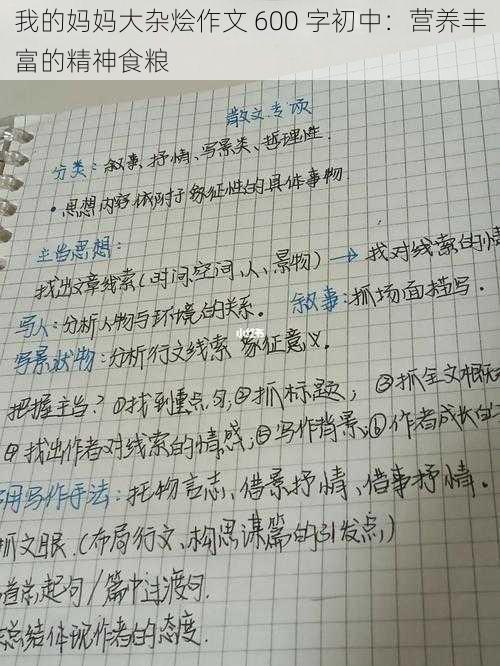 我的妈妈大杂烩作文 600 字初中：营养丰
富的精神食粮
散文专项
分类：叙事、抒情、写景类、哲理性.
·思想内容依附于象征性的具体事物
主旨思想：
找出文章线索(时间、空间、人、景物) → 找对线索的情
写人：分析人物与环境的关系。 叙事：抓场面描写.
小红书
写景状物：分析行文线索 象征意义.
把握主旨？①找到重点句;②抓标题; ③抓全文
④找出作者对线索的情感;⑤写作背景;⑥作者成长的
用写作手法：托物言志、借景抒情、借事抒情.
抓文眼.(布局行文、构思谋篇的引发点)
首常起句/篇中过渡句.
总结体现作者的态度.